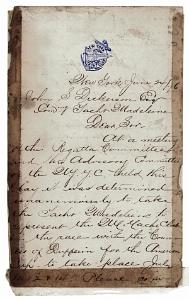 New York June 24/76
John S. Dickerson Esq
Com'd'g Yacht Madeleine
Dear Sir.
At a meeting
of the Regatta Committee
and the Advisory Committee
of the N.Y.Y.C. held this
day it was determined
unanimously to take
the Yacht Madeleine to
represent the N.Y. Yacht Club
in the races with the Countess
of Dufferin for the American
Cup to take place July
Please